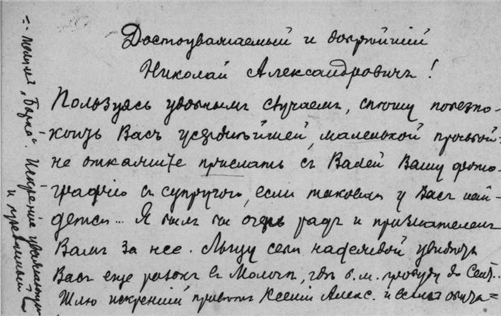 Достоуважаемый и добрѣйшій
Николай Александровичъ!
Пользуясь удобнымъ случаемъ, спѣшу побезпо-
коить Васъ усерднѣйшей, маленькой просьбой:
не откажите прислать съ Валей Вашу фото-
графію съ супругою, если таковая у Васъ най-
дется... Я былъ бы очень радъ и признателенъ
Вамъ за нее. Льщу себя надеждой увидѣть
Васъ еще разокъ въ гдѣ б. м. пробуду до Сент.
Шлю искренній привѣтъ Ксеніи Алекс. и всѣмъ
Искренно уважающій
и преданный